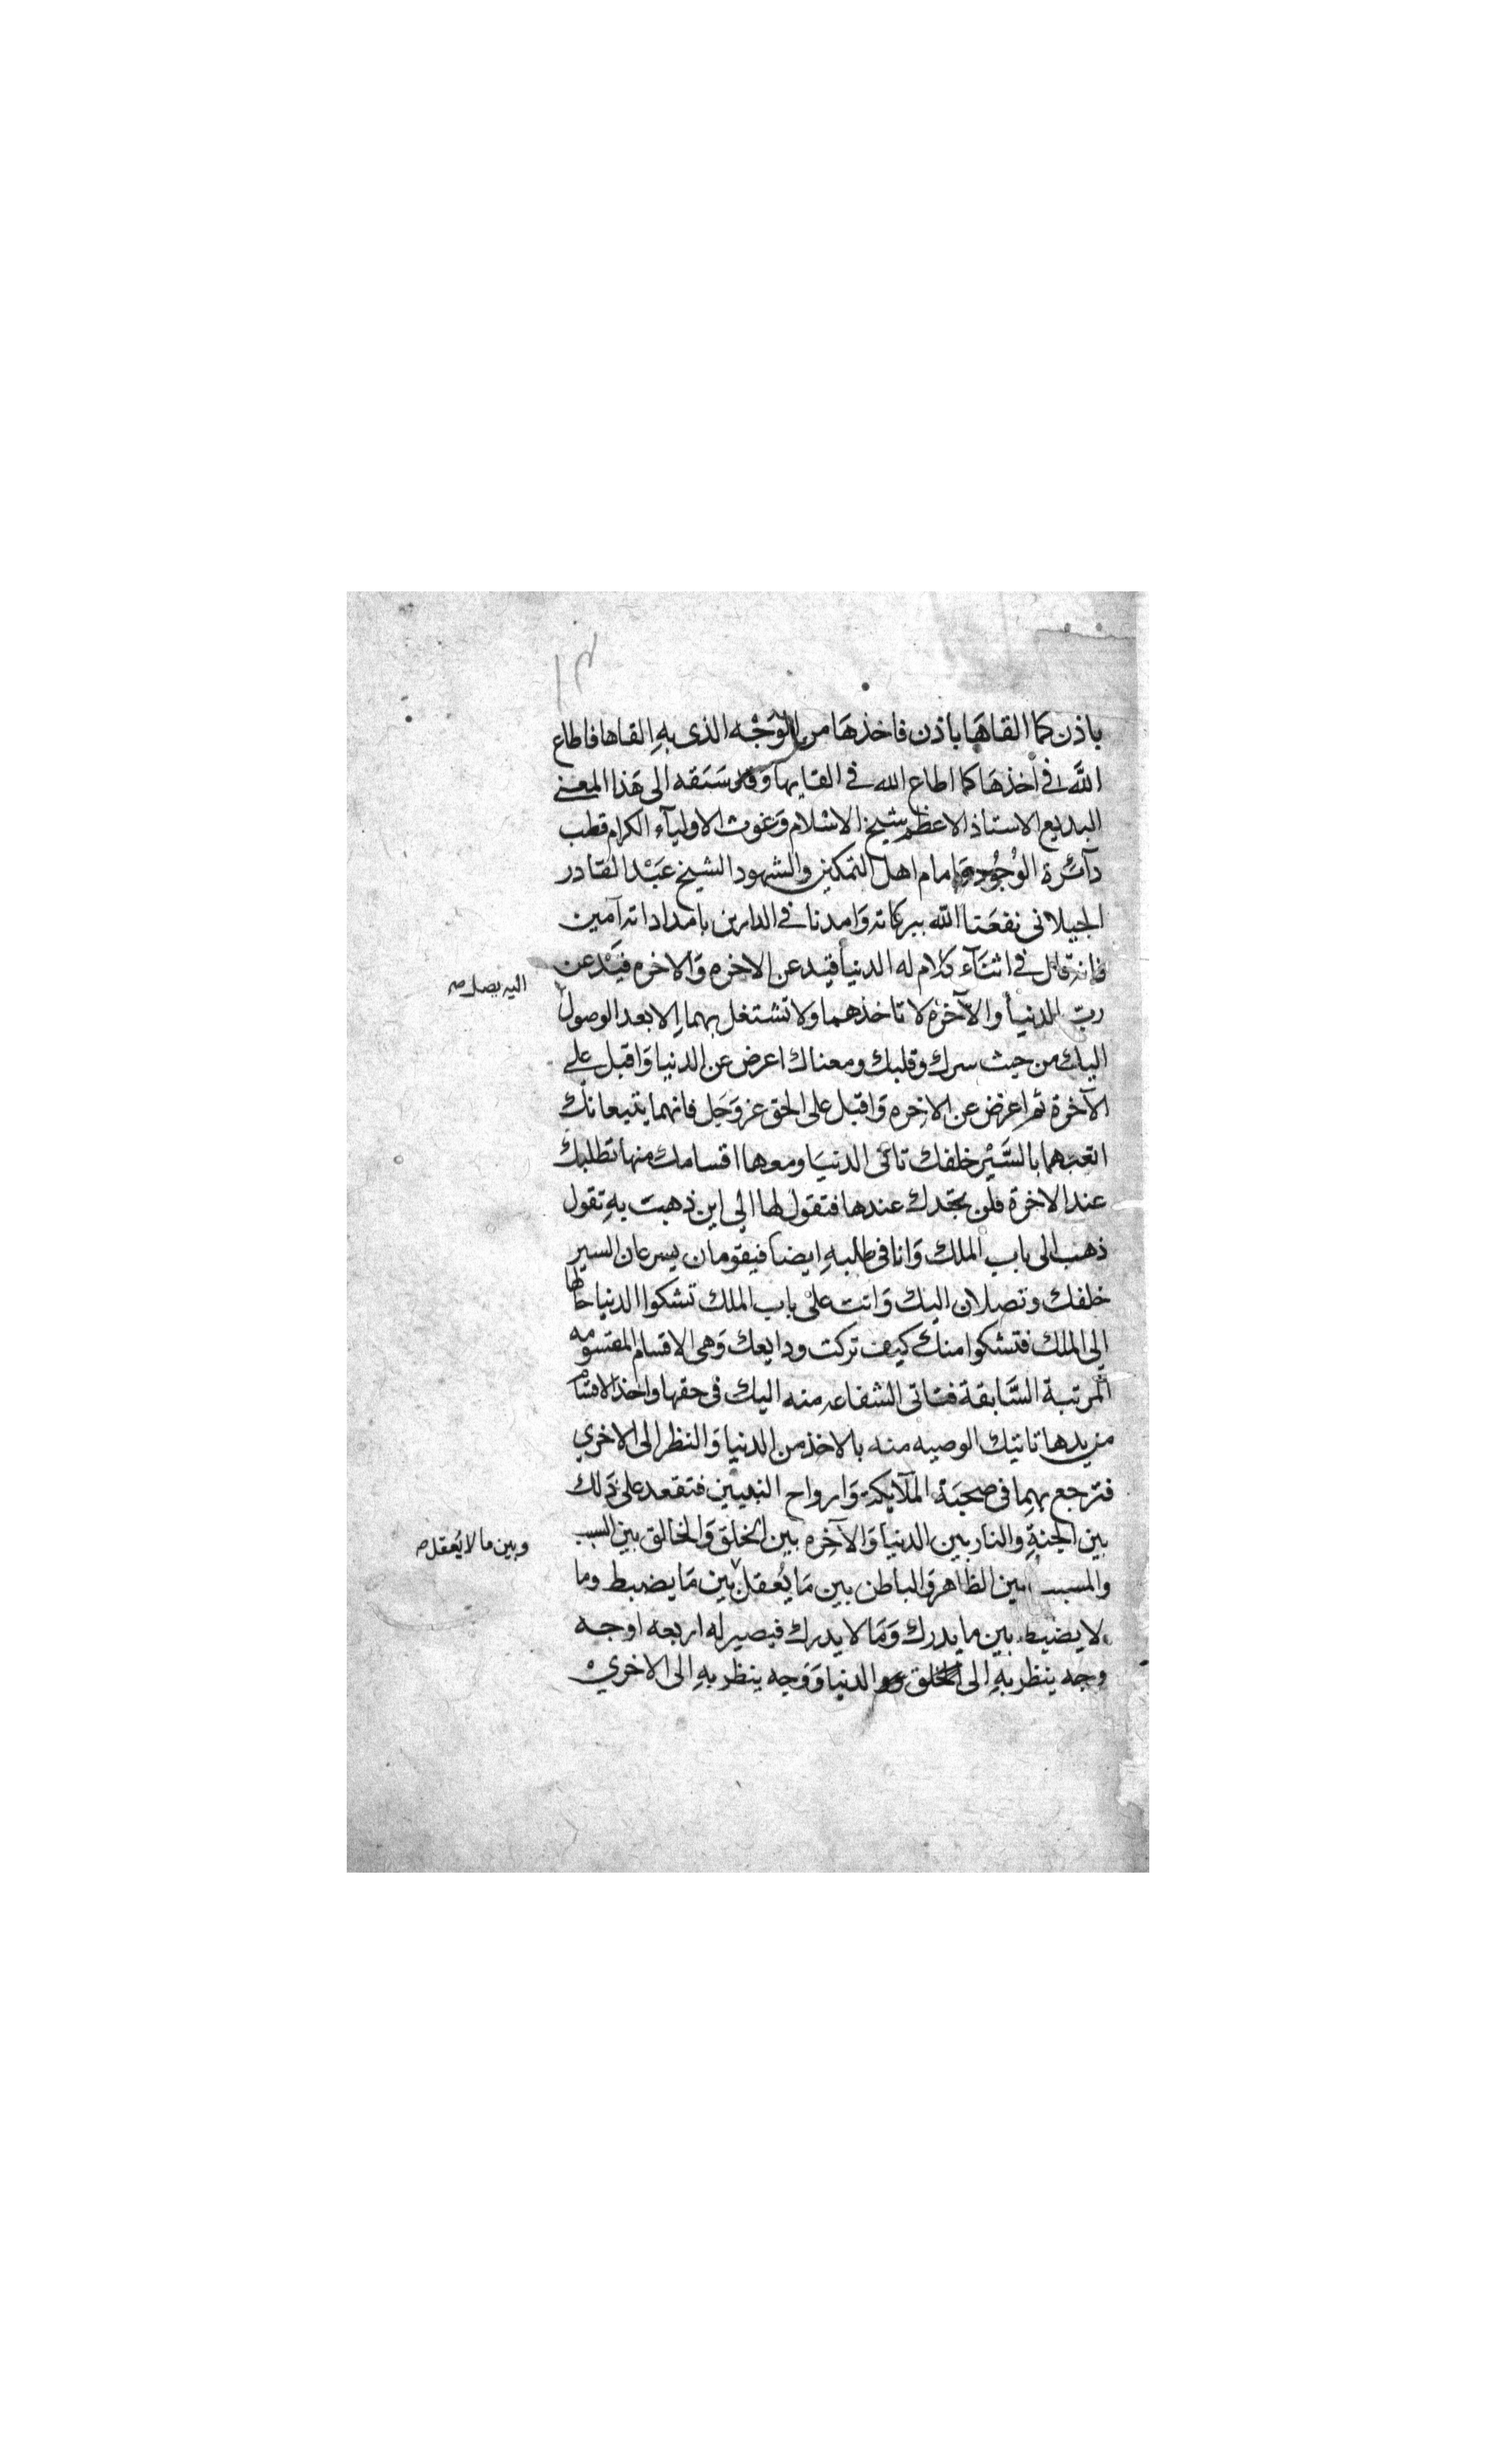 ١٣
باذن كما القاهَا باذن فاخذهَا من الوَجْه الذى بهِ القاها فاطاع
اللَّه فى اخذهَا كما اطاع الله فى القايها وقد سَبَقه الى هَذا المعنى
البديع الاستاذ الاعظم شيخ الاسْلام وَغوث الاوليآء الكرام قطب
دآئرة الوُجُود وَامام اهل التمكين والشهود الشيخ عَبْد القادر
الجيلانى نفعَنا اللَّه ببركاته وَامدنا فى الدارين بامداداته آمين
فانه قال فى اثنَآء كلام له الدنيا قيد عن الاخره وَالاخره قيَدْ عن
ربّ الدنيا والآخرْه لا تاخذهما ولا تشتغل بهما الا بعد الوصول
اليه بصل صح
اليك من حيث سرك وقلبك ومعناك اعرض عن الدنيا وَاقبل على
الآخرة ثم اعرض عن الاخره وَاقبل على الحق عز وَجَل فانهما يتبعانك
اتعبهما بالسَّيْر خلفك تاتى الدنيَا ومعها اقسامك منها تطلبك
عند الاخرة فلَن تجدك عندها فتقول لها الى اين ذهبت بهِ تقول
ذهب الى باب الملك وَانا فى طلبهِ ايضا فيقومان يسرعان السير
خلفك وتصلان اليك وَانت على باب الملك تشكوا الدنيا حالها
الى الملك فتشكوا منك كيف تركت ودايعك وَهى الاقسام المقسومه
المرتبة السَّابقة فتاتى الشفاعه منه اليك فى حقها واخذ الاقسام
من يدها تاتيك الوصيه منه بالاخذ من الدنيا وَالنظر الى الاخرى
فترجع بهما فى صحبَة الملآيكة وَارواح النبيين فتقعد على ذَلك
بين الجنةِ والنار بين الدنيا وَالآخِره بين الخلق وَالخالق بين السبب
والمسبب بين الظاهر وَالباطن بين مَا يُعقل بين مَا يضبط وما
وبين ما لا يُعقل صح
لا يضبط بين ما يدرك وَمَا لا يدرك فيصير له اربعه اوجه
وجه ينظر بهِ الى الخلق والدنيا وَوَجه ينظر بهِ الى الاخرىْ